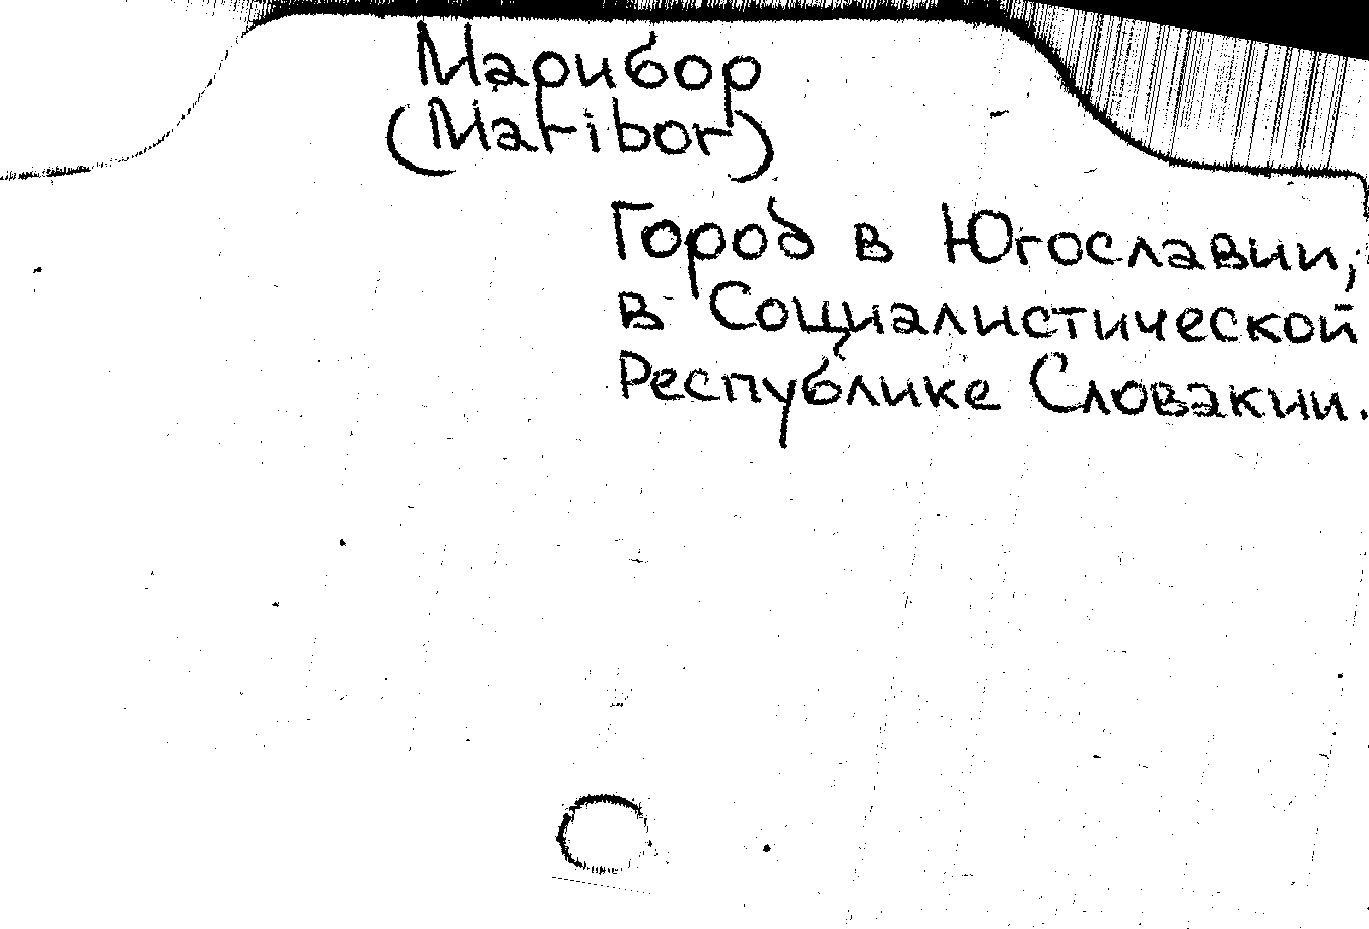 Марибор
(Maribor)
Город в Югославии,
в Социалистической
Республике Словакии.